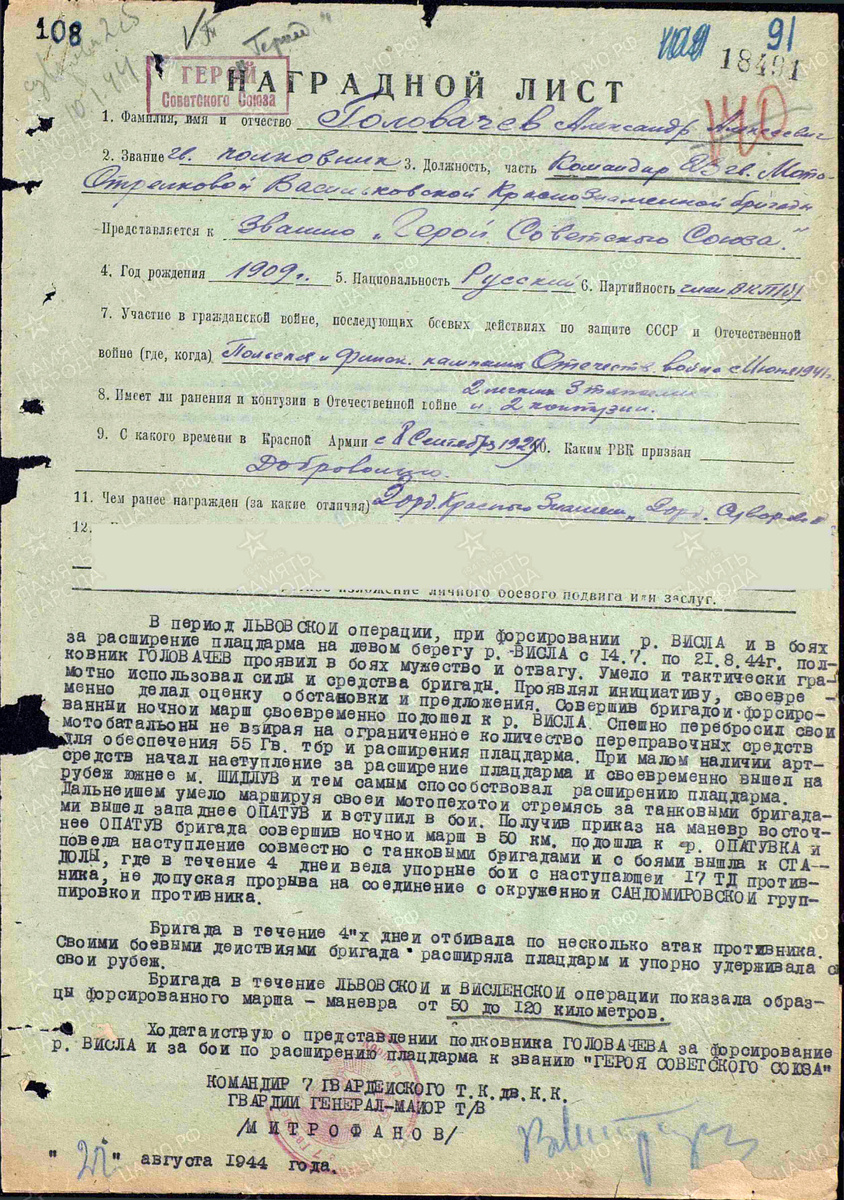 108
91
18491
ГЕРОЙ
Советского Союза
НАГРАДНОЙ ЛИСТ
1. Фамилия, имя и отчество Головачев Александр Алексеевич
2. Звание гв. полковник 3. Должность, часть Командир 23 гв. Мото-
Стрелковой Васильковской Краснознаменной бригады
Представляется к Званию „Герой Советского Союза."
4. Год рождения 1909 г. 5. Национальность Русский 6. Партийность член ВКП(б)
7. Участие в гражданской войне, последующих боевых действиях по защите СССР и Отечественной
войне (где, когда) Польская и финск. кампания Отечеств. война с Июня 1941 г.
8. Имеет ли ранения и контузии в Отечественной войне 2 легких 3 тяжелых
и 2 контузии.
9. С какого времени в Красной Армии с 8 Сентябр 1929 10. Каким РВК призван
Добровольно.
11. Чем ранее награжден (за какие отличия) 2 орд. Красного Знамени, орд. Суворова
12.
изложение личного боевого подвига или заслуг.
В период ЛЬВОВСКОЙ операции, при форсировании р. ВИСЛА и в боях
за расширение плацдарма на левом берегу р. ВИСЛА с 14.7. по 21.8.44г. пол-
ковник ГОЛОВАЧЕВ проявил в боях мужество и отвагу. Умело и тактически гра-
мотно использовал силы и средства бригады. Проявлял инициативу, своевре -
менно делал оценку обстановки и предложения. Совершив бригадой форсиро-
ванный ночной марш своевременно подошел к р. ВИСЛА. Спешно перебросил свои
мотобатальоны не взирая на ограниченное количество переправочных средств
для обеспечения 55 Гв. тбр и расширения плацдарма. При малом наличии арт-
средств начал наступление за расширение плацдарма и своевременно вышел на
рубеж южнее м. ШИДЛУВ и тем самым способствовал расширению плацдарма.
Дальнейшем умело маршируя своей мотопехотой стремясь за танковыми бригада-
ми вышел западнее ОПАТУВ и вступил в бой. Получив приказ на маневр восточ-
нее ОПАТУВ бригада совершив ночной марш в 50 км. подошла к р. ОПАТУВКА и
повела наступление совместно с танковыми бригадами и с боями вышла к СТА-
ДОЛЫ, где в течение 4 дней вела упорные бои с наступающей 17 ТД против-
ника, не допуская прорыва на соединение с окруженной САНДОМИРОВСКОЙ груп-
пировкой противника.
Бригада в течение 4"х дней отбивала по несколько атак противника.
Своими боевыми действиями бригада расширяла плацдарм и упорно удерживала
свой рубеж.
Бригада в течение ЛЬВОВСКОЙ и ВИСЛЕНСКОЙ операции показала образ-
цы форсированного марша - маневра от 50 до 120 километров.
Ходатайствую о представлении полковника ГОЛОВАЧЕВА за форсирование
р. ВИСЛА и за бои по расширению плацдарма к званию "ГЕРОЯ СОВЕТСКОГО СОЮЗА"
КОМАНДИР 7 ГВАРДЕЙСКОГО Т.К.дв.К.К.
ГВАРДИИ ГЕНЕРАЛ-МАЙОР Т/В
/МИТРОФАНОВ/
"22" августа 1944 года.